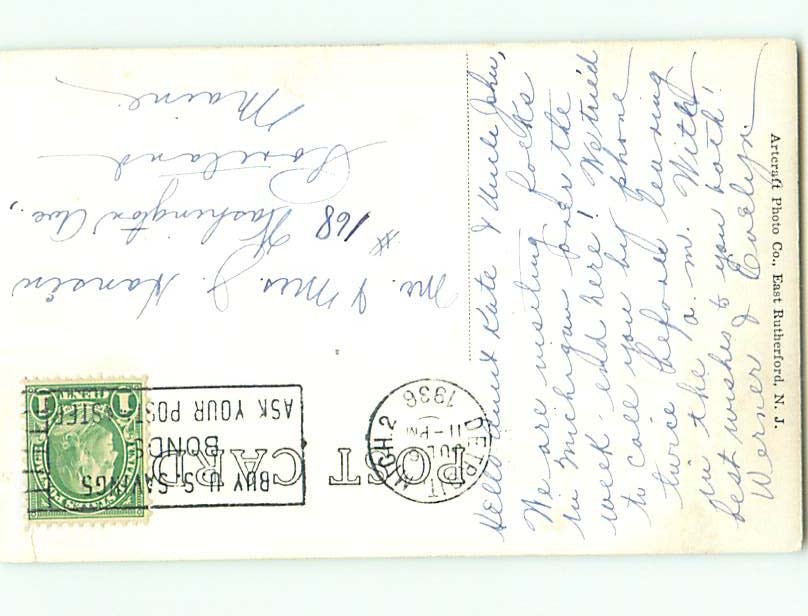 POST CARD
DETROIT
MICH. 2
11-PM
1936
BUY U.S. SAVINGS
BONDS
ASK YOUR POSTMASTER
1 1
Hello Aunt Kate & Uncle John,
We are visiting folks
in Michigan over the
week-end here! We tried
to call you by phone
twice before leaving
in the a.m. With
best wishes to you both!
Werner & Evelyn.
Mr. & Mrs. J. Hansen
# 168 Washington Ave.,
Portland
Maine
Artcraft Photo Co., East Rutherford, N. J.